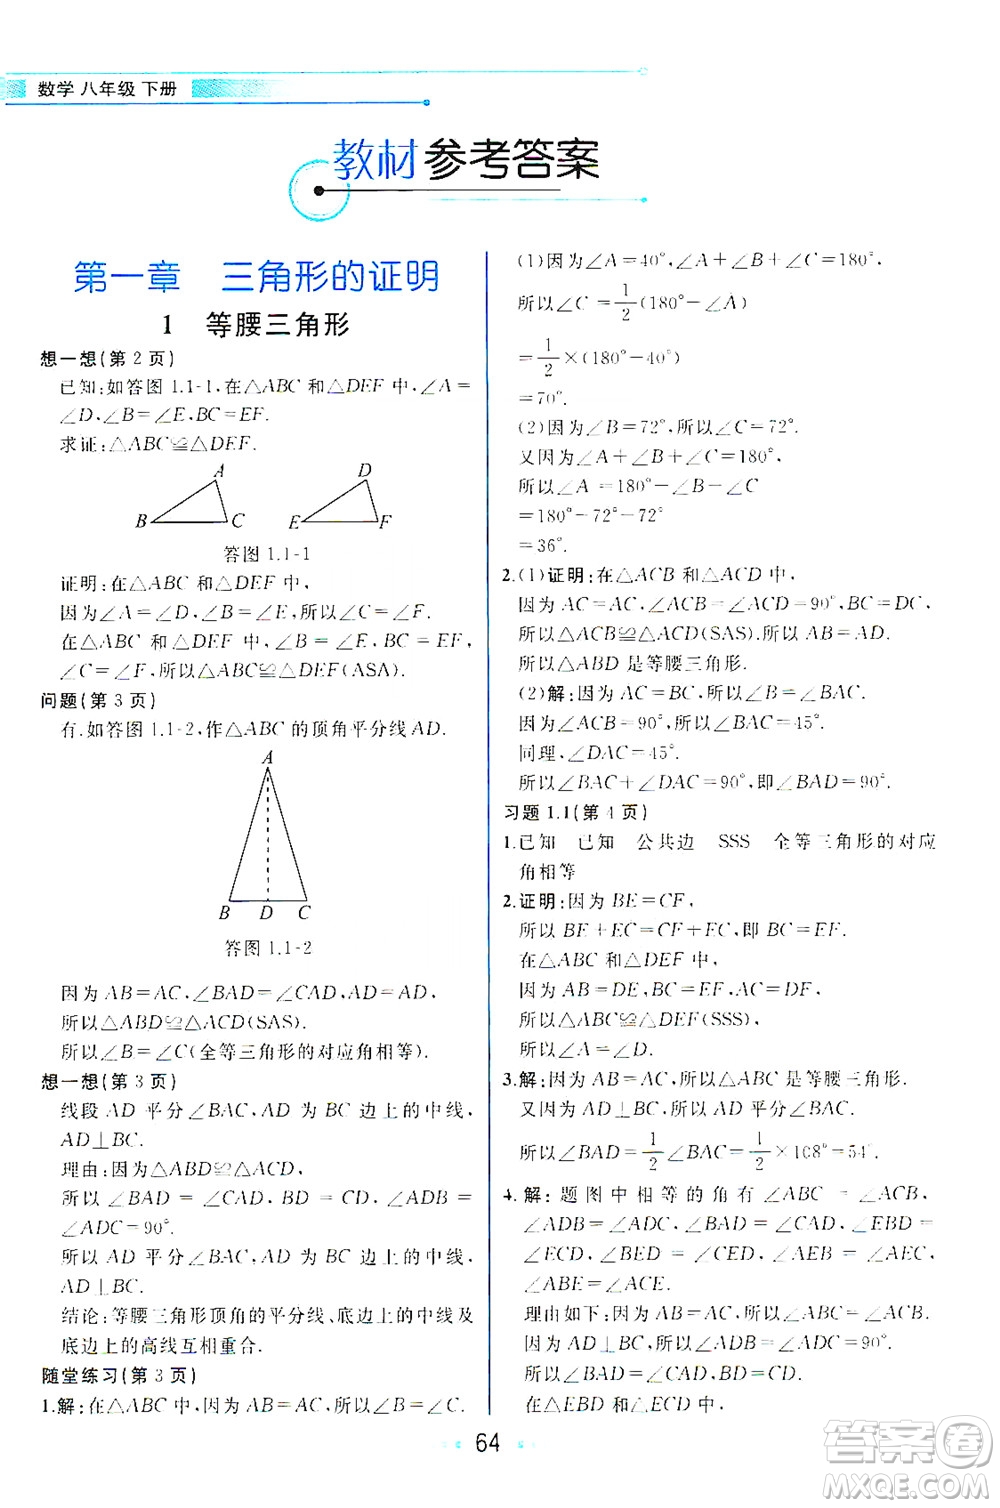 数学 八年级 下册
教材参考答案
第一章 三角形的证明
1 等腰三角形
想一想(第 2 页)
已知:如答图 1.1-1,在△ABC 和△DEF 中,∠A=
∠D,∠B=∠E,BC=EF.
求证:△ABC≌△DEF.
A
B
C
D
E
F
答图 1.1-1
证明:在△ABC 和△DEF 中,
因为∠A=∠D,∠B=∠E,所以∠C=∠F.
在△ABC 和△DEF 中,∠B=∠E,BC=EF,
∠C=∠F,所以△ABC≌△DEF(ASA).
问题(第 3 页)
有.如答图 1.1-2,作△ABC 的顶角平分线 AD.
A
B D C
答图 1.1-2
因为 AB=AC,∠BAD=∠CAD,AD=AD,
所以△ABD≌△ACD(SAS).
所以∠B=∠C(全等三角形的对应角相等).
想一想(第 3 页)
线段 AD 平分∠BAC,AD 为 BC 边上的中线,
AD⊥BC.
理由:因为△ABD≌△ACD,
所以∠BAD=∠CAD,BD=CD,∠ADB=
∠ADC=90°.
所以 AD 平分∠BAC,AD 为 BC 边上的中线,
AD⊥BC.
结论:等腰三角形顶角的平分线、底边上的中线及
底边上的高线互相重合.
随堂练习(第 3 页)
1.解:在△ABC 中,因为 AB=AC,所以∠B=∠C.
(1)因为∠A=40°,∠A+∠B+∠C=180°,
所以∠C=1/2(180°-∠A)
=1/2×(180°-40°)
=70°.
(2)因为∠B=72°,所以∠C=72°.
又因为∠A+∠B+∠C=180°,
所以∠A=180°-∠B-∠C
=180°-72°-72°
=36°.
2.(1)证明:在△ACB 和△ACD 中,
因为 AC=AC,∠ACB=∠ACD=90°,BC=DC,
所以△ACB≌△ACD(SAS).所以 AB=AD.
所以△ABD 是等腰三角形.
(2)解:因为 AC=BC,所以∠B=∠BAC.
因为∠ACB=90°,所以∠BAC=45°.
同理,∠DAC=45°.
所以∠BAC+∠DAC=90°,即∠BAD=90°.
习题 1.1(第 4 页)
1.已知 已知 公共边 SSS 全等三角形的对应
角相等
2.证明:因为 BE=CF,
所以 BE+EC=CF+EC,即 BC=EF.
在△ABC 和△DEF 中,
因为 AB=DE,BC=EF,AC=DF,
所以△ABC≌△DEF(SSS).
所以∠A=∠D.
3.解:因为 AB=AC,所以△ABC 是等腰三角形.
又因为 AD⊥BC,所以 AD 平分∠BAC.
所以∠BAD=1/2∠BAC=1/2×108°=54°.
4.解:题图中相等的角有∠ABC=∠ACB,
∠ADB=∠ADC,∠BAD=∠CAD,∠EBD=
∠ECD,∠BED=∠CED,∠AEB=∠AEC,
∠ABE=∠ACE.
理由如下:因为 AB=AC,所以∠ABC=∠ACB.
因为 AD⊥BC,所以∠ADB=∠ADC=90°.
所以∠BAD=∠CAD,BD=CD.
在△EBD 和△ECD 中,
64
答案圈
MXQE.COM